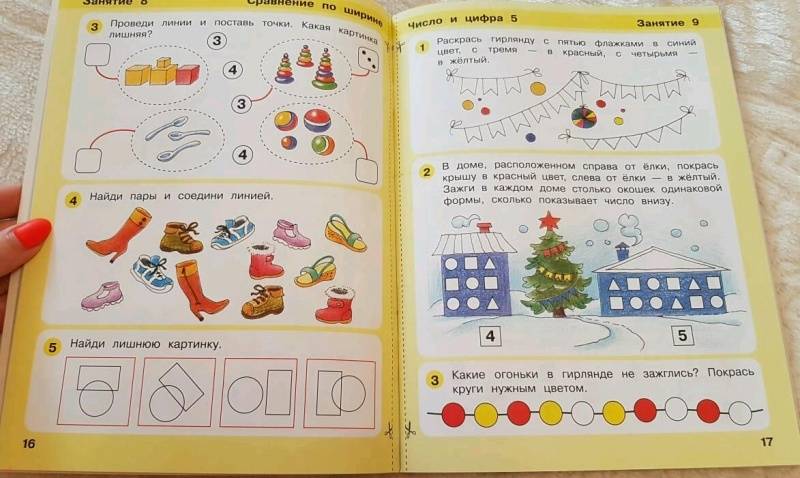 Занятие 8
Сравнение по ширине
3
Проведи линии и поставь точки. Какая картинка
лишняя?
3
4
3
4
4
Найди пары и соедини линией.
5
Найди лишнюю картинку.
16
Число и цифра 5
Занятие 9
1
Раскрась гирлянду с пятью флажками в синий
цвет, с тремя — в красный, с четырьмя —
в жёлтый.
2
В доме, расположенном справа от ёлки, покрась
крышу в красный цвет, слева от ёлки — в жёлтый.
Зажги в каждом доме столько окошек одинаковой
формы, сколько показывает число внизу.
4
5
3
Какие огоньки в гирлянде не зажглись? Покрась
круги нужным цветом.
17